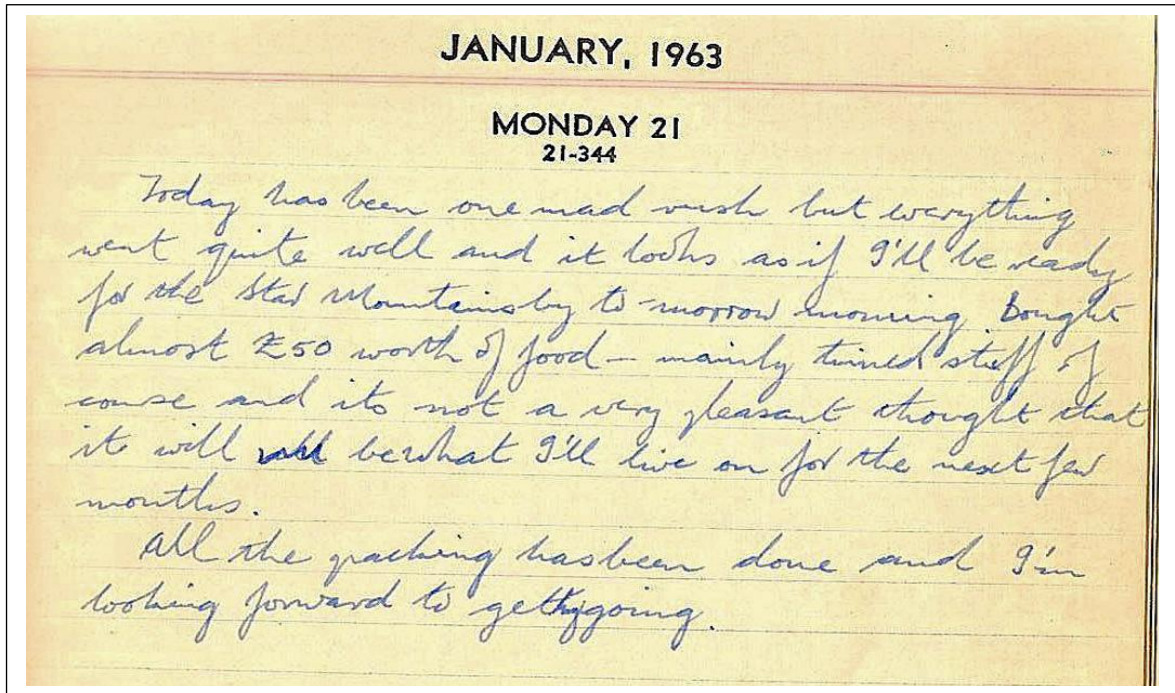 JANUARY, 1963
MONDAY 21
21-344
Today has been one mad rush but everything
went quite well and it looks as if I'll be ready
for the Star Mountains by to-morrow morning. Bought
almost £50 worth of food – mainly tinned stuff of
course and its not a very pleasant thought that
it will be what I'll live on for the next few
months.
All the packing has been done and I'm
looking forward to getting going.